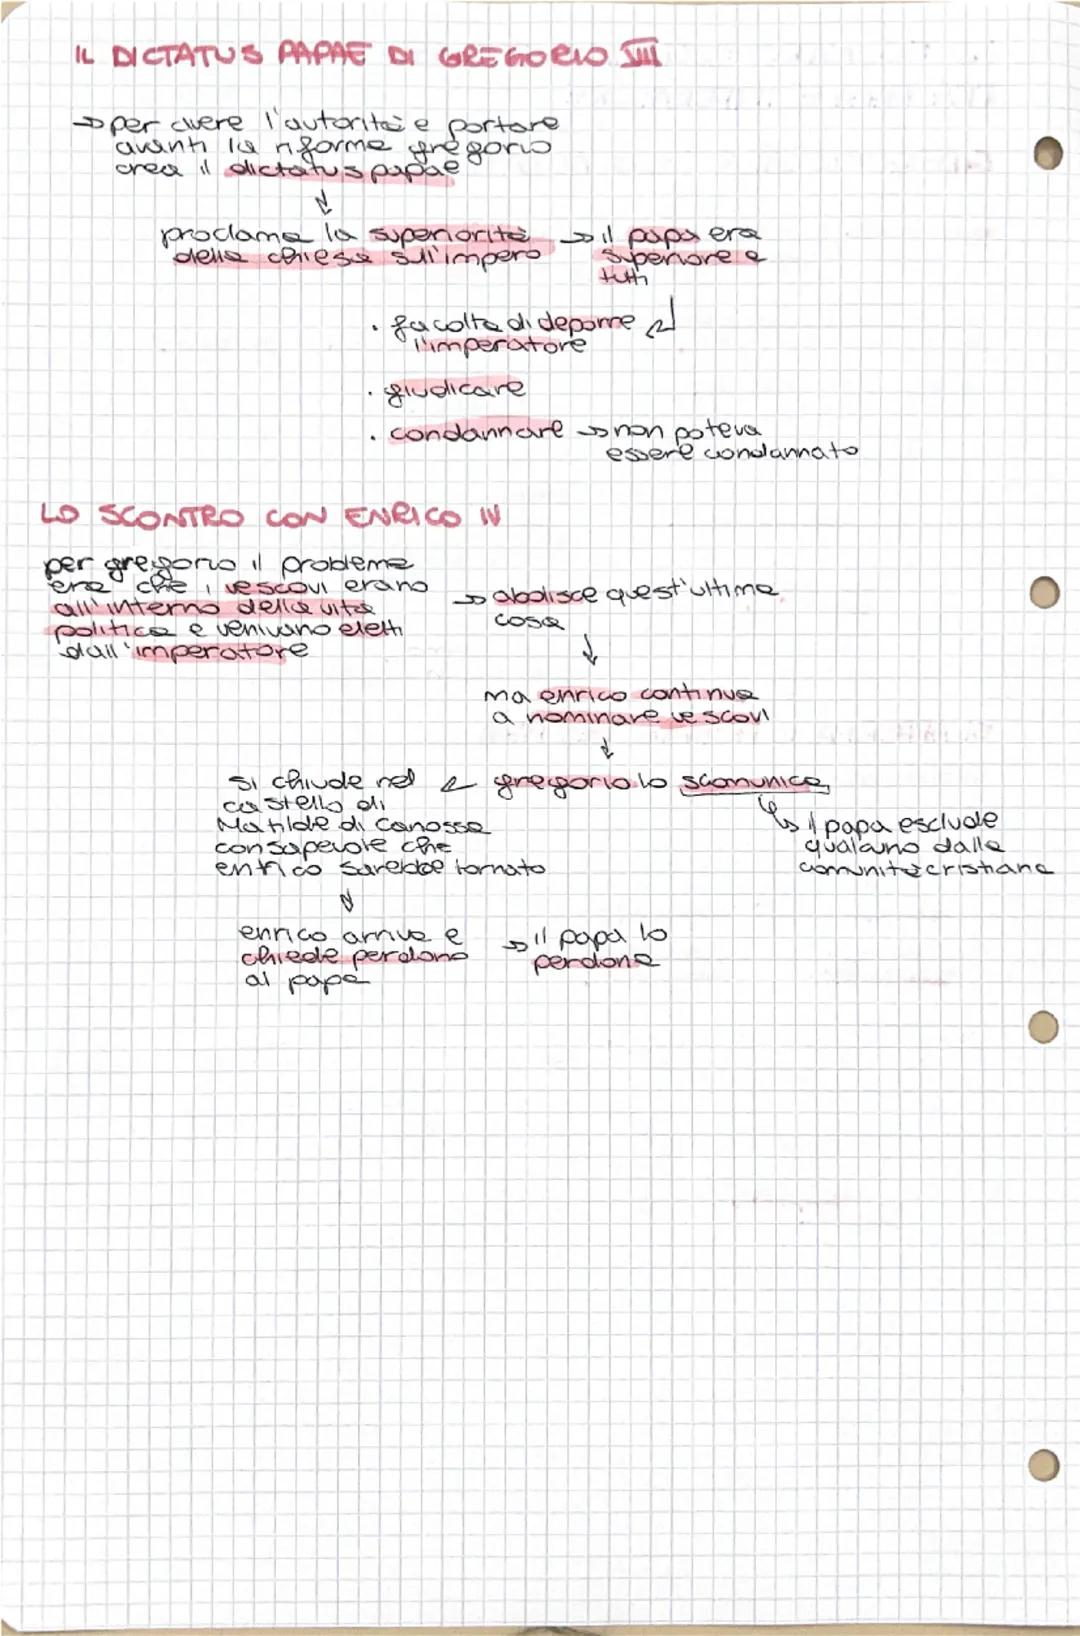 IL DICTATUS PAPAE DI GREGORIO VIII
→ per avere l'autorità e portare
avanti la riforma gregorio
crea il dictatus papae
↓
proclama la superiorità → il papa era
della chiesa sull'impero superiore a
tutti
• facoltà di deporre ↲
l'imperatore
• giudicare
• condannare → non poteva
essere condannato
LO SCONTRO CON ENRICO IV
per gregorio il problema
era che i vescovi erano → abolisce quest'ultima
all'interno della vita cosa
politica e venivano eletti ↓
dall'imperatore
ma enrico continua
a nominare vescovi
↓
si chiude nel ← gregorio lo scomunica
castello di
Matilde di Canossa ↳ il papa esclude
consapevole che qualcuno dalla
enrico sarebbe tornato comunità cristiana
↓
enrico arriva e → il papa lo
chiede perdono perdona
al papa